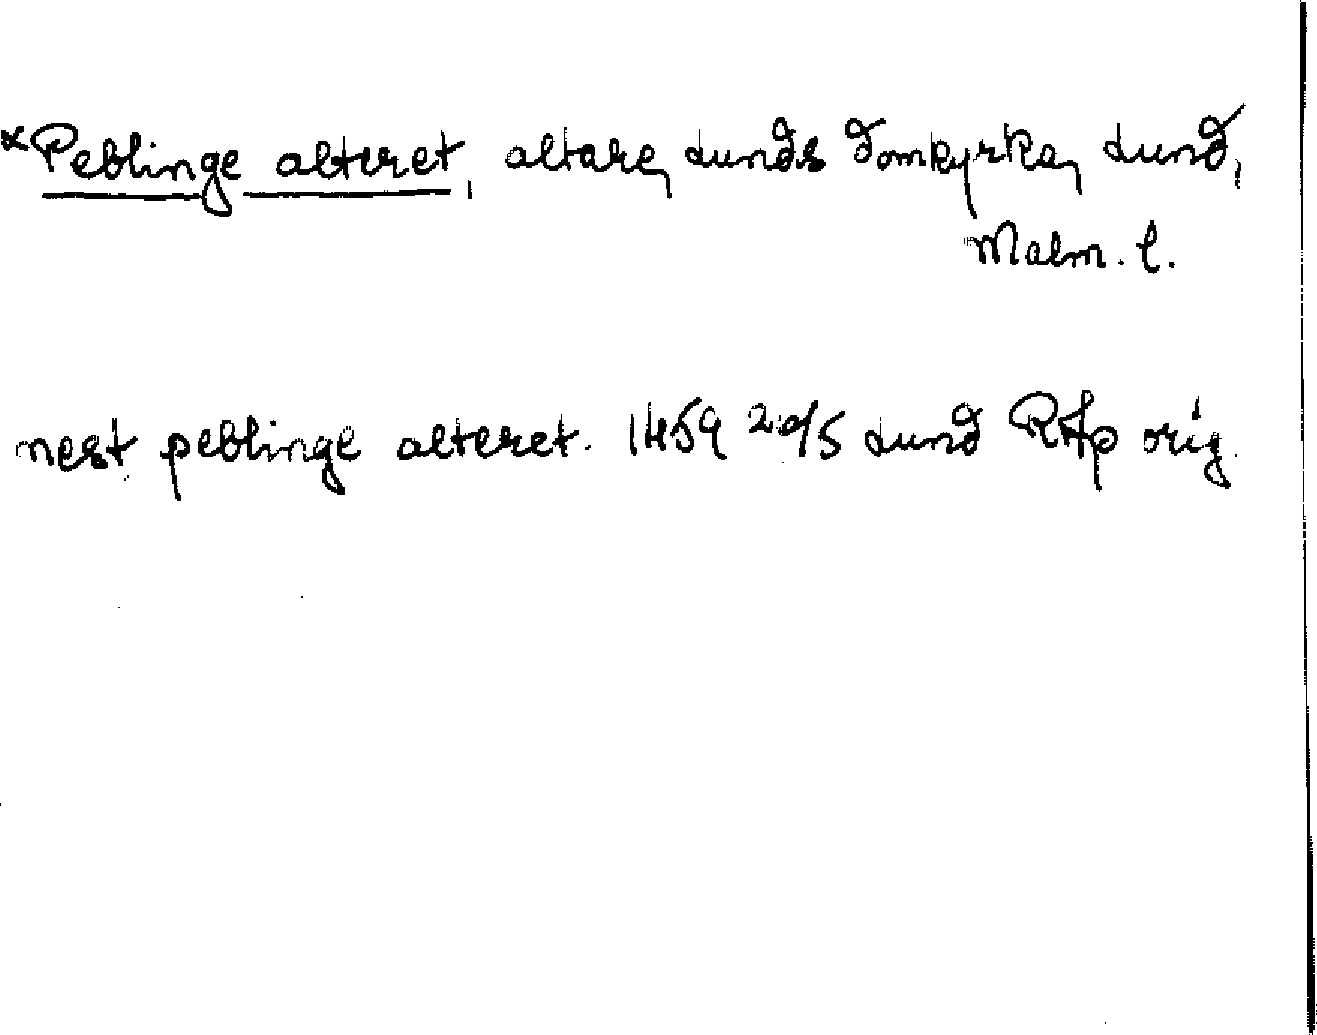 *Peblinge alteret, altare, Lunds domkyrka, Lund,
Malm. l.
nest peblinge alteret. 1459 20/5 Lund RAp orig.